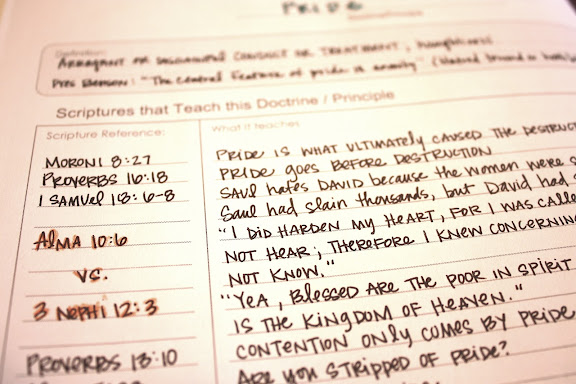 PRIDE
Definition:
ARROGANT OR DISDAINFUL CONDUCT OR TREATMENT, haughtiness
Pres Benson: "The central feature of pride is enmity" (hatred toward or
Scriptures that Teach this Doctrine / Principle
Scripture Reference:
What it teaches
MORONI 8:27
PRIDE IS WHAT ULTIMATELY CAUSED THE DESTRUCT
PROVERBS 16:18
PRIDE GOES BEFORE DESTRUCTION
1 SAMUEL 18:6-8
SAUL HATES DAVID BECAUSE THE WOMEN WERE S
Saul had slain thousands, but David had s
ALMA 10:6
"I DID HARDEN MY HEART, FOR I WAS CALLE
NOT HEAR; THEREFORE I KNEW CONCERNING
VS.
NOT KNOW."
3 NEPHI 12:3
"YEA, BLESSED ARE THE POOR IN SPIRIT
IS THE KINGDOM OF HEAVEN."
PROVERBS 13:10
CONTENTION ONLY COMES BY PRIDE
ARE YOU STRIPPED OF PRIDE?